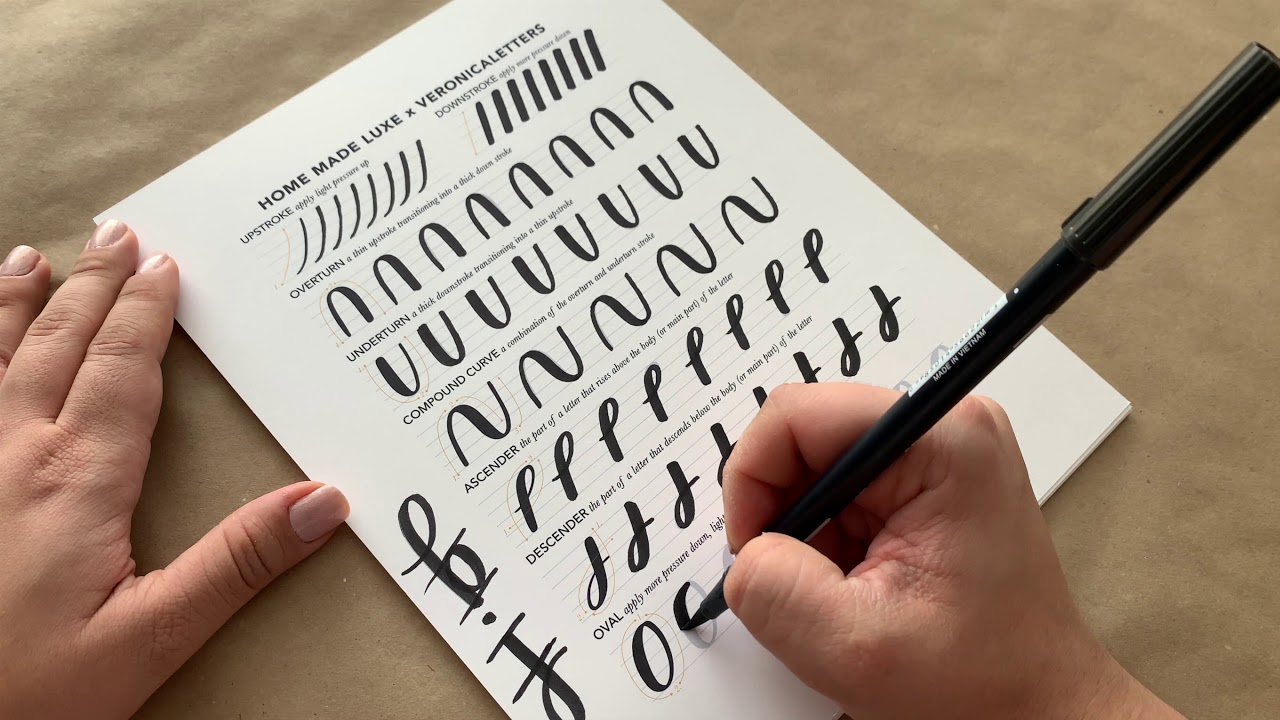 HOME MADE LUXE x VERONICALETTERS
UPSTROKE apply light pressure up
DOWNSTROKE apply more pressure down
OVERTURN a thin upstroke transitioning into a thick down stroke
UNDERTURN a thick downstroke transitioning into a thin upstroke
COMPOUND CURVE a combination of the overturn and underturn stroke
ASCENDER the part of a letter that rises above the body (or main part) of the letter
DESCENDER the part of a letter that descends below the body (or main part) of the letter
OVAL apply more pressure down, light
MADE IN VIETNAM